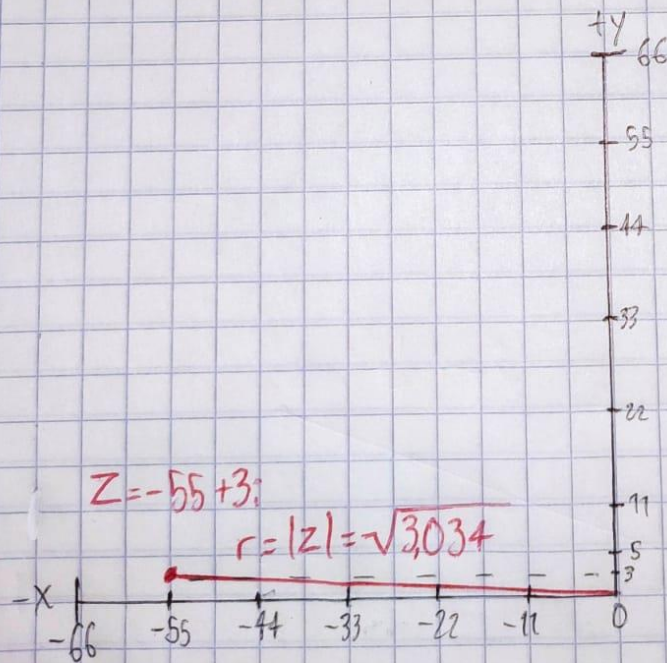 +y
66
55
44
33
22
Z=-55+3i
11
r=|z|=√3,034
5
3
-X
-66 -55 -44 -33 -22 -11 0